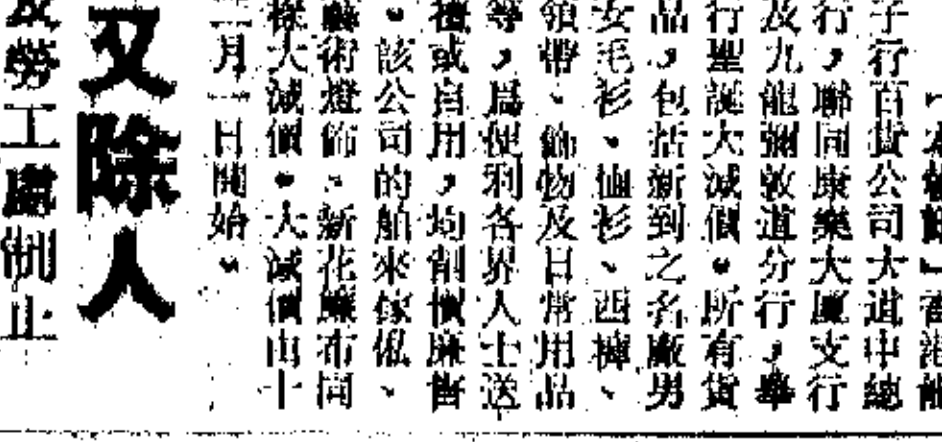 【本報訊】香港龍
子行百貨公司大道中總
行，聯同康樂大厦支行
及九龍彌敦道分行，舉
行聖誕大減價。所有貨
品，包括新到之名廠男
女毛衫、恤衫、西褲、
領帶、飾物及日常用品
等，爲便利各界人士送
禮或自用，均削價廉售
。該公司的舶來傢俬、
藝術燈飾、新花簾布同
樣大減價。大減價由十
二月一日開始。
又除人
及勞工處制止